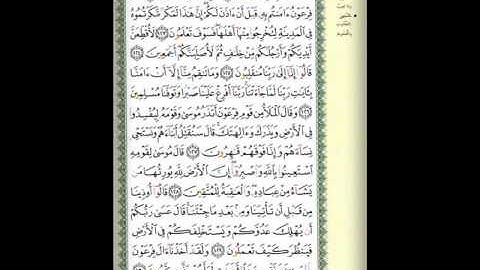 فِرْعَوْنُ ءَامَنتُم بِهِۦ قَبْلَ أَنْ ءَاذَنَ لَكُمْ إِنَّ هَٰذَا لَمَكْرٌ مَّكَرْتُمُوهُ
فِي ٱلْمَدِينَةِ لِتُخْرِجُوا۟ مِنْهَآ أَهْلَهَا فَسَوْفَ تَعْلَمُونَ ١٢٣ لَأُقَطِّعَنَّ
أَيْدِيَكُمْ وَأَرْجُلَكُم مِّنْ خِلَٰفٍ ثُمَّ لَأُصَلِّبَنَّكُمْ أَجْمَعِينَ ١٢٤
قَالُوٓا۟ إِنَّآ إِلَىٰ رَبِّنَا مُنقَلِبُونَ ١٢٥ وَمَا تَنقِمُ مِنَّآ إِلَّآ أَنْ ءَامَنَّا
بِـَٔايَٰتِ رَبِّنَا لَمَّا جَآءَتْنَا رَبَّنَآ أَفْرِغْ عَلَيْنَا صَبْرًا وَتَوَفَّنَا مُسْلِمِينَ
١٢٦ وَقَالَ ٱلْمَلَأُ مِن قَوْمِ فِرْعَوْنَ أَتَذَرُ مُوسَىٰ وَقَوْمَهُۥ لِيُفْسِدُوا۟
فِي ٱلْأَرْضِ وَيَذَرَكَ وَءَالِهَتَكَ قَالَ سَنُقَتِّلُ أَبْنَآءَهُمْ وَنَسْتَحْيِۦ
نِسَآءَهُمْ وَإِنَّا فَوْقَهُمْ قَٰهِرُونَ ١٢٧ قَالَ مُوسَىٰ لِقَوْمِهِ
ٱسْتَعِينُوا۟ بِٱللَّهِ وَٱصْبِرُوٓا۟ إِنَّ ٱلْأَرْضَ لِلَّهِ يُورِثُهَا مَن
يَشَآءُ مِنْ عِبَادِهِۦ وَٱلْعَٰقِبَةُ لِلْمُتَّقِينَ ١٢٨ قَالُوٓا۟ أُوذِينَا
مِن قَبْلِ أَن تَأْتِيَنَا وَمِنۢ بَعْدِ مَا جِئْتَنَا قَالَ عَسَىٰ رَبُّكُمْ
أَن يُهْلِكَ عَدُوَّكُمْ وَيَسْتَخْلِفَكُمْ فِي ٱلْأَرْضِ
فَيَنظُرَ كَيْفَ تَعْمَلُونَ ١٢٩ وَلَقَدْ أَخَذْنَآ ءَالَ فِرْعَوْنَ